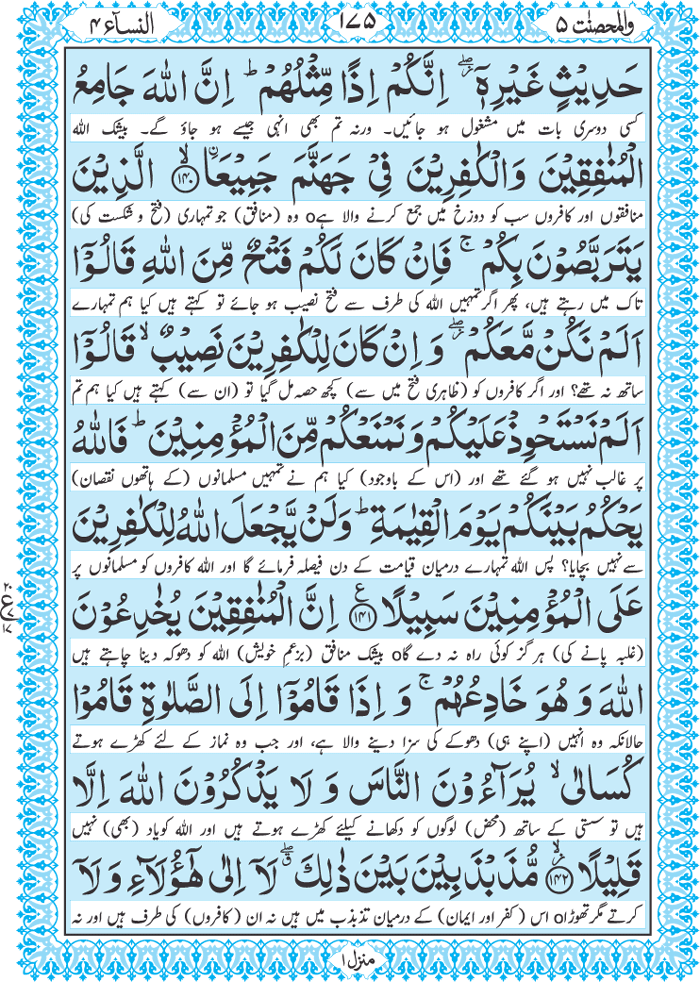 والمحصنٰت ۵
۱۷۵
النسآء ۴
حَدِيْثٍ غَيْرِهٖۤ ۖ٘ اِنَّكُمْ اِذًا مِّثْلُهُمْ ؕ اِنَّ اللّٰهَ جَامِعُ
کسی دوسری بات میں مشغول ہو جائیں۔ ورنہ تم بھی انہی جیسے ہو جاؤ گے۔ بیشک اللہ
الْمُنٰفِقِيْنَ وَالْكٰفِرِيْنَ فِيْ جَهَنَّمَ جَمِيْعَاۨ ۙ﴿۱۴۰﴾ الَّذِيْنَ
منافقوں اور کافروں سب کو دوزخ میں جمع کرنے والا ہے0 وہ (منافق) جو تمہاری (فتح و شکست کی)
يَتَرَبَّصُوْنَ بِكُمْ ۚ فَاِنْ كَانَ لَكُمْ فَتْحٌ مِّنَ اللّٰهِ قَالُوْۤا
تاک میں رہتے ہیں، پھر اگر تمہیں اللہ کی طرف سے فتح نصیب ہو جائے تو کہتے ہیں کیا ہم تمہارے
اَلَمْ نَكُنْ مَّعَكُمْ ۖ٘ وَ اِنْ كَانَ لِلْكٰفِرِيْنَ نَصِيْبٌ ۙ قَالُوْۤا
ساتھ نہ تھے؟ اور اگر کافروں کو (ظاہری فتح میں سے) کچھ حصہ مل گیا تو (ان سے) کہتے ہیں کیا ہم تم
اَلَمْ نَسْتَحْوِذْ عَلَيْكُمْ وَ نَمْنَعْكُمْ مِّنَ الْمُؤْمِنِيْنَ ؕ فَاللّٰهُ
پر غالب نہیں ہو گئے تھے اور (اس کے باوجود) کیا ہم نے تمہیں مسلمانوں (کے ہاتھوں نقصان)
يَحْكُمُ بَيْنَكُمْ يَوْمَ الْقِيٰمَةِ ؕ وَ لَنْ يَّجْعَلَ اللّٰهُ لِلْكٰفِرِيْنَ
سے نہیں بچایا؟ پس اللہ تمہارے درمیان قیامت کے دن فیصلہ فرمائے گا اور اللہ کافروں کو مسلمانوں پر
عَلَى الْمُؤْمِنِيْنَ سَبِيْلًا ﴿۱۴۱﴾ ع اِنَّ الْمُنٰفِقِيْنَ يُخٰدِعُوْنَ
(غلبہ پانے کی) ہرگز کوئی راہ نہ دے گا0 بیشک منافق (بزعمِ خویش) اللہ کو دھوکہ دینا چاہتے ہیں
اللّٰهَ وَ هُوَ خَادِعُهُمْ ۚ وَ اِذَا قَامُوْۤا اِلَى الصَّلٰوةِ قَامُوْا
حالانکہ وہ انہیں (اپنے ہی) دھوکے کی سزا دینے والا ہے، اور جب وہ نماز کے لئے کھڑے ہوتے
كُسَالٰى ۙ يُرَآءُوْنَ النَّاسَ وَ لَا يَذْكُرُوْنَ اللّٰهَ اِلَّا
ہیں تو سستی کے ساتھ (محض) لوگوں کو دکھانے کیلئے کھڑے ہوتے ہیں اور اللہ کویاد (بھی) نہیں
قَلِيْلًا ﴿۱۴۲﴾ۙ٘ مُّذَبْذَبِيْنَ بَيْنَ ذٰلِكَ ۖۗ لَاۤ اِلٰى هٰۤؤُلَآءِ وَ لَاۤ
کرتے مگر تھوڑا0 اس (کفر اور ایمان) کے درمیان تذبذب میں ہیں نہ ان (کافروں) کی طرف ہیں اور نہ
منزل ۱